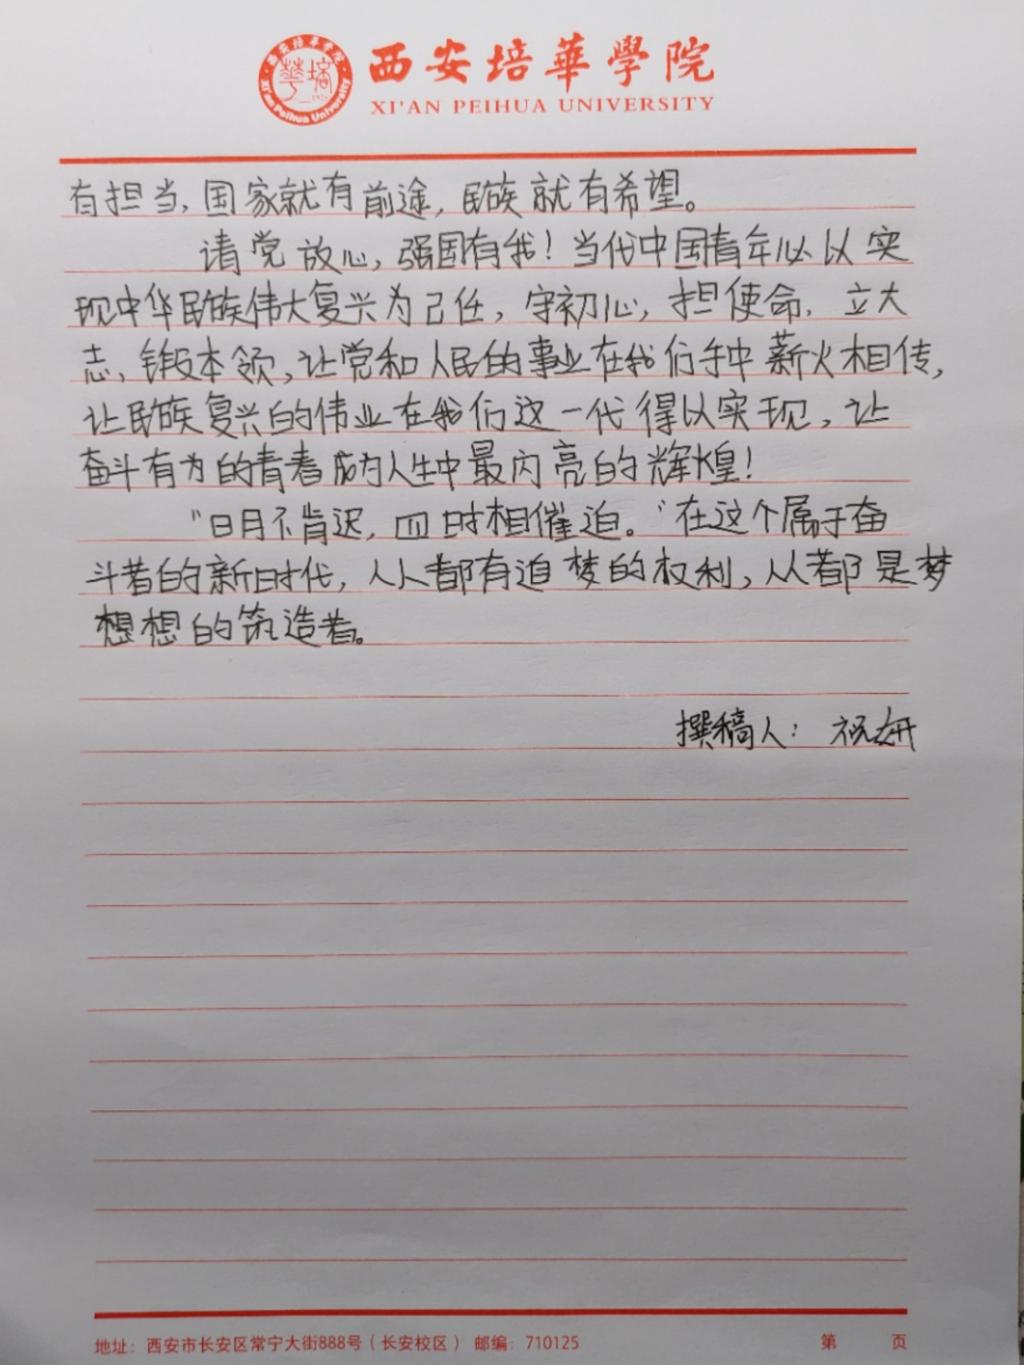 西安培華學院
XI'AN PEIHUA UNIVERSITY
有担当,国家就有前途,民族就有希望。
请党放心,强国有我!当代中国青年必以实
现中华民族伟大复兴为己任,守初心,担使命,立大
志,锻本领,让党和人民的事业在我们手中薪火相传,
让民族复兴的伟业在我们这一代得以实现,让
奋斗有为的青春成为人生中最闪亮的辉煌!
"日月不肯迟,四时相催迫。"在这个属于奋
斗者的新时代,人人都有追梦的权利,人人都是梦
想想的筑造者。
撰稿人:祝妍
地址:西安市长安区常宁大街888号(长安校区) 邮编:710125 第 页